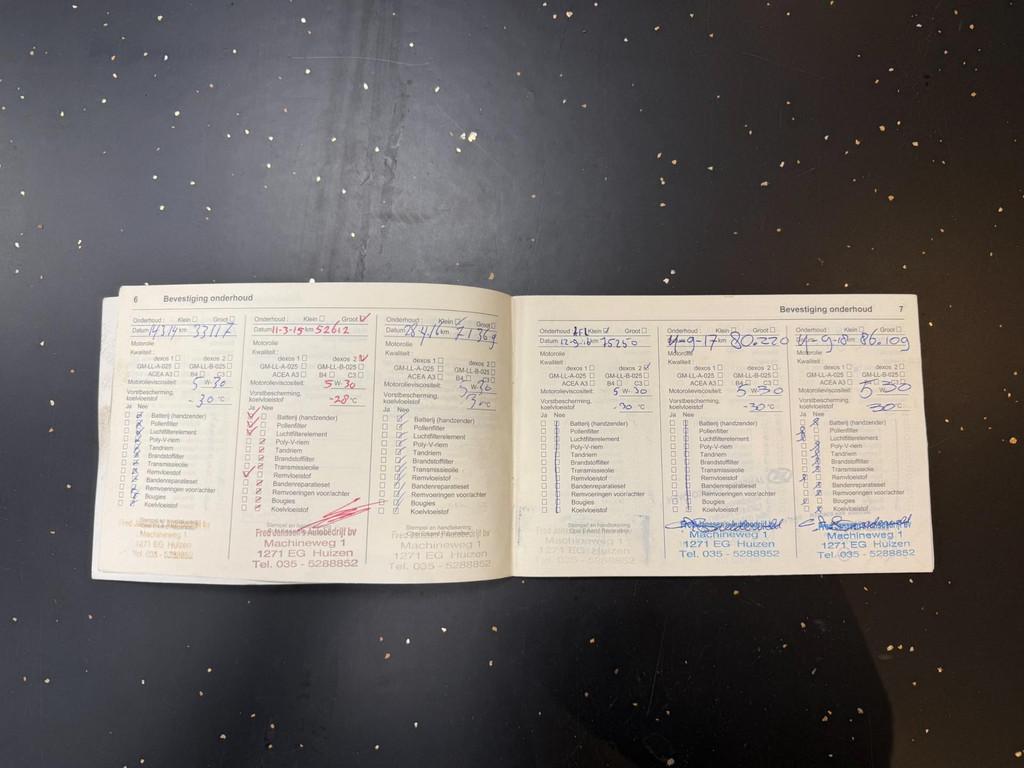 6 Bevestiging onderhoud
Onderhoud : Klein Groot
Datum 14314 km 33117
Motorolie
Kwaliteit :
dexos 1 dexos 2
GM-LL-A-025 GM-LL-B-025
ACEA A3 B4 C3
Motorolieviscositeit: 5 W-30
Vorstbescherming,
koelvloeistof -30 °C
Ja Nee
Batterij (handzender)
Pollenfilter
Luchtfilterelement
Poly-V-riem
Tandriem
Brandstoffilter
Transmissieolie
Remvloeistof
Bandenreparatieset
Remvoeringen voor/achter
Bougies
Koelvloeistof
Stempel en handtekening
Machineweg 1
1271 EG Huizen
Tel. 035 - 5288852
Onderhoud : Klein Groot
Datum 11-3-15 km 52612
Motorolie
Kwaliteit :
dexos 1 dexos 2
GM-LL-A-025 GM-LL-B-025
ACEA A3 B4 C3
Motorolieviscositeit: 5 W-30
Vorstbescherming,
koelvloeistof -28 °C
Ja Nee
Batterij (handzender)
Pollenfilter
Luchtfilterelement
Poly-V-riem
Tandriem
Brandstoffilter
Transmissieolie
Remvloeistof
Bandenreparatieset
Remvoeringen voor/achter
Bougies
Koelvloeistof
Stempel en handtekening
Fred Janssen's Autobedrijf bv
Machineweg 1
1271 EG Huizen
Tel. 035 - 5288852
Onderhoud : Klein Groot
Datum 28-4-16 km 71369
Motorolie
Kwaliteit :
dexos 1 dexos 2
GM-LL-A-025 GM-LL-B-025
ACEA A3 B4 C3
Motorolieviscositeit: 5 W-30
Vorstbescherming,
koelvloeistof °C
Ja Nee
Batterij (handzender)
Pollenfilter
Luchtfilterelement
Poly-V-riem
Tandriem
Brandstoffilter
Transmissieolie
Remvloeistof
Bandenreparatieset
Remvoeringen voor/achter
Bougies
Koelvloeistof
Stempel en handtekening
Machineweg 1
1271 EG Huizen
Tel. 035 - 5288852
Bevestiging onderhoud 7
Onderhoud : Klein Groot
Datum km 75250
Motorolie
Kwaliteit :
dexos 1 dexos 2
GM-LL-A-025 GM-LL-B-025
ACEA A3 B4 C3
Motorolieviscositeit: 5 W-30
Vorstbescherming,
koelvloeistof -30 °C
Ja Nee
Batterij (handzender)
Pollenfilter
Luchtfilterelement
Poly-V-riem
Tandriem
Brandstoffilter
Transmissieolie
Remvloeistof
Bandenreparatieset
Remvoeringen voor/achter
Bougies
Koelvloeistof
Stempel en handtekening
Machineweg 1
1271 EG Huizen
Tel. 035 - 5288852
Onderhoud : Klein Groot
-9-17 km 80.220
Motorolie
Kwaliteit :
dexos 1 dexos 2
GM-LL-A-025 GM-LL-B-025
ACEA A3 B4 C3
Motorolieviscositeit: 5 W-30
Vorstbescherming,
koelvloeistof -30 °C
Ja Nee
Batterij (handzender)
Pollenfilter
Luchtfilterelement
Poly-V-riem
Tandriem
Brandstoffilter
Transmissieolie
Remvloeistof
Bandenreparatieset
Remvoeringen voor/achter
Bougies
Koelvloeistof
Fred Janssen's Autobedrijf bv
Machineweg 1
1271 EG Huizen
Tel. 035 - 5288852
Onderhoud : Klein Groot
-9-18 86.109
Motorolie
Kwaliteit :
dexos 1 dexos 2
GM-LL-A-025 GM-LL-B-025
ACEA A3 B4 C3
Motorolieviscositeit: 5 W-30
Vorstbescherming,
koelvloeistof -30 °C
Ja Nee
Batterij (handzender)
Pollenfilter
Luchtfilterelement
Poly-V-riem
Tandriem
Brandstoffilter
Transmissieolie
Remvloeistof
Bandenreparatieset
Remvoeringen voor/achter
Bougies
Koelvloeistof
Machineweg 1
1271 EG Huizen
Tel. 035 - 5288852